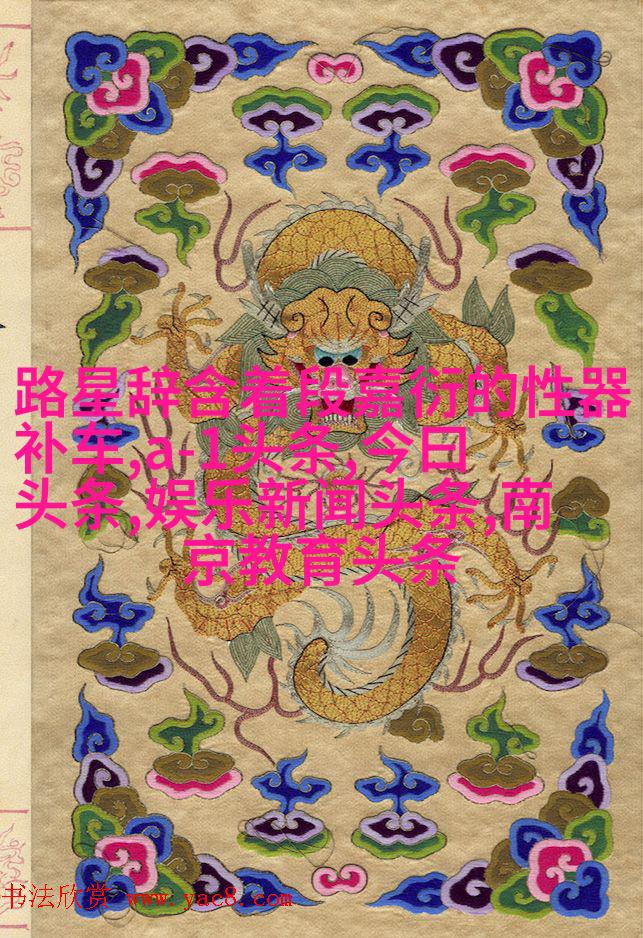 路星辞含着段嘉衍的性器
补车,a-1头条,今曰
头条,娱乐新闻头条,南
京教育头条
书法欣赏 www.yac8.com